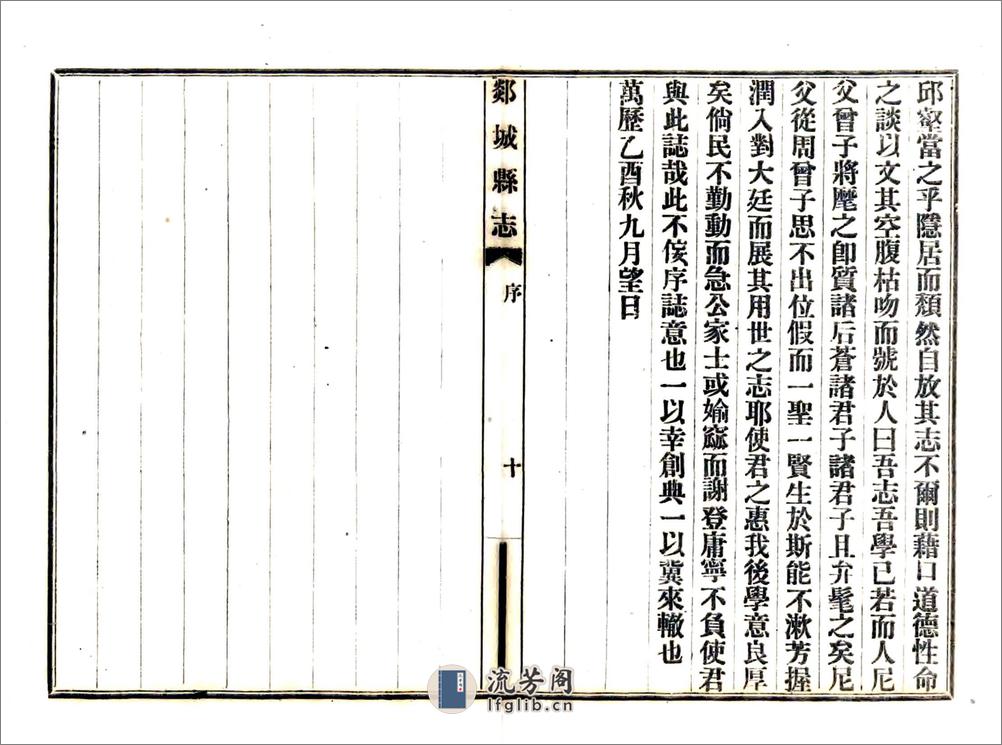 邱壑當之乎隱居而頹然自放其志不爾則藉口道德性命
之談以文其空腹枯吻而號於人曰吾志吾學已若而人尼
父曾子將麾之卽質諸后蒼諸君子諸君子且弁髦之矣尼
父從周曾子思不出位假而一聖一賢生於斯能不漱芳握
潤入對大廷而展其用世之志耶使君之惠我後學意良厚
矣倘民不勤動而急公家士或媮窳而謝登庸寧不負使君
與此誌哉此不俟序誌意也一以幸創典一以冀來轍也
萬歷乙酉秋九月望日
郯城縣志
序
十
流芳阁
lfglib.cn